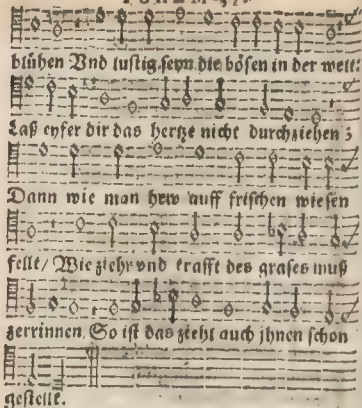 blühen Vnd lustig seyn die bösen in der welt:
Laß eyfer dir das hertze nicht durchziehen;
Dann wie man hew auff frischen wiesen
fellt/ Wie ziehr vnd krafft des grases muß
zerrinnen, So ist das ziehl auch jhnen schon
gestellt.